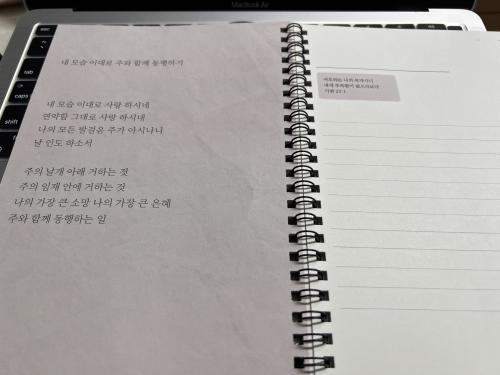 MacBook Air
tab
caps
shift
내 모습 이대로 주와 함께 동행하기
내 모습 이대로 사랑 하시네
연약함 그대로 사랑 하시네
나의 모든 발걸음 주가 아시나니
날 인도 하소서
주의 날개 아래 거하는 것
주의 임재 안에 거하는 것
나의 가장 큰 소망 나의 가장 큰 은혜
주와 함께 동행하는 일
여호와는 나의 목자시니
내게 부족함이 없으리로다
시편 23:1